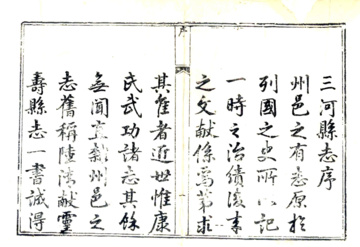 三河縣志序
州邑之有志原於
列國之史所以記
一時之治績後來
之文献係焉第求
其雅者近世惟康
氏武功諸志其餘
無聞真新州邑之
志舊稱陸法献靈
壽縣志一書誠得